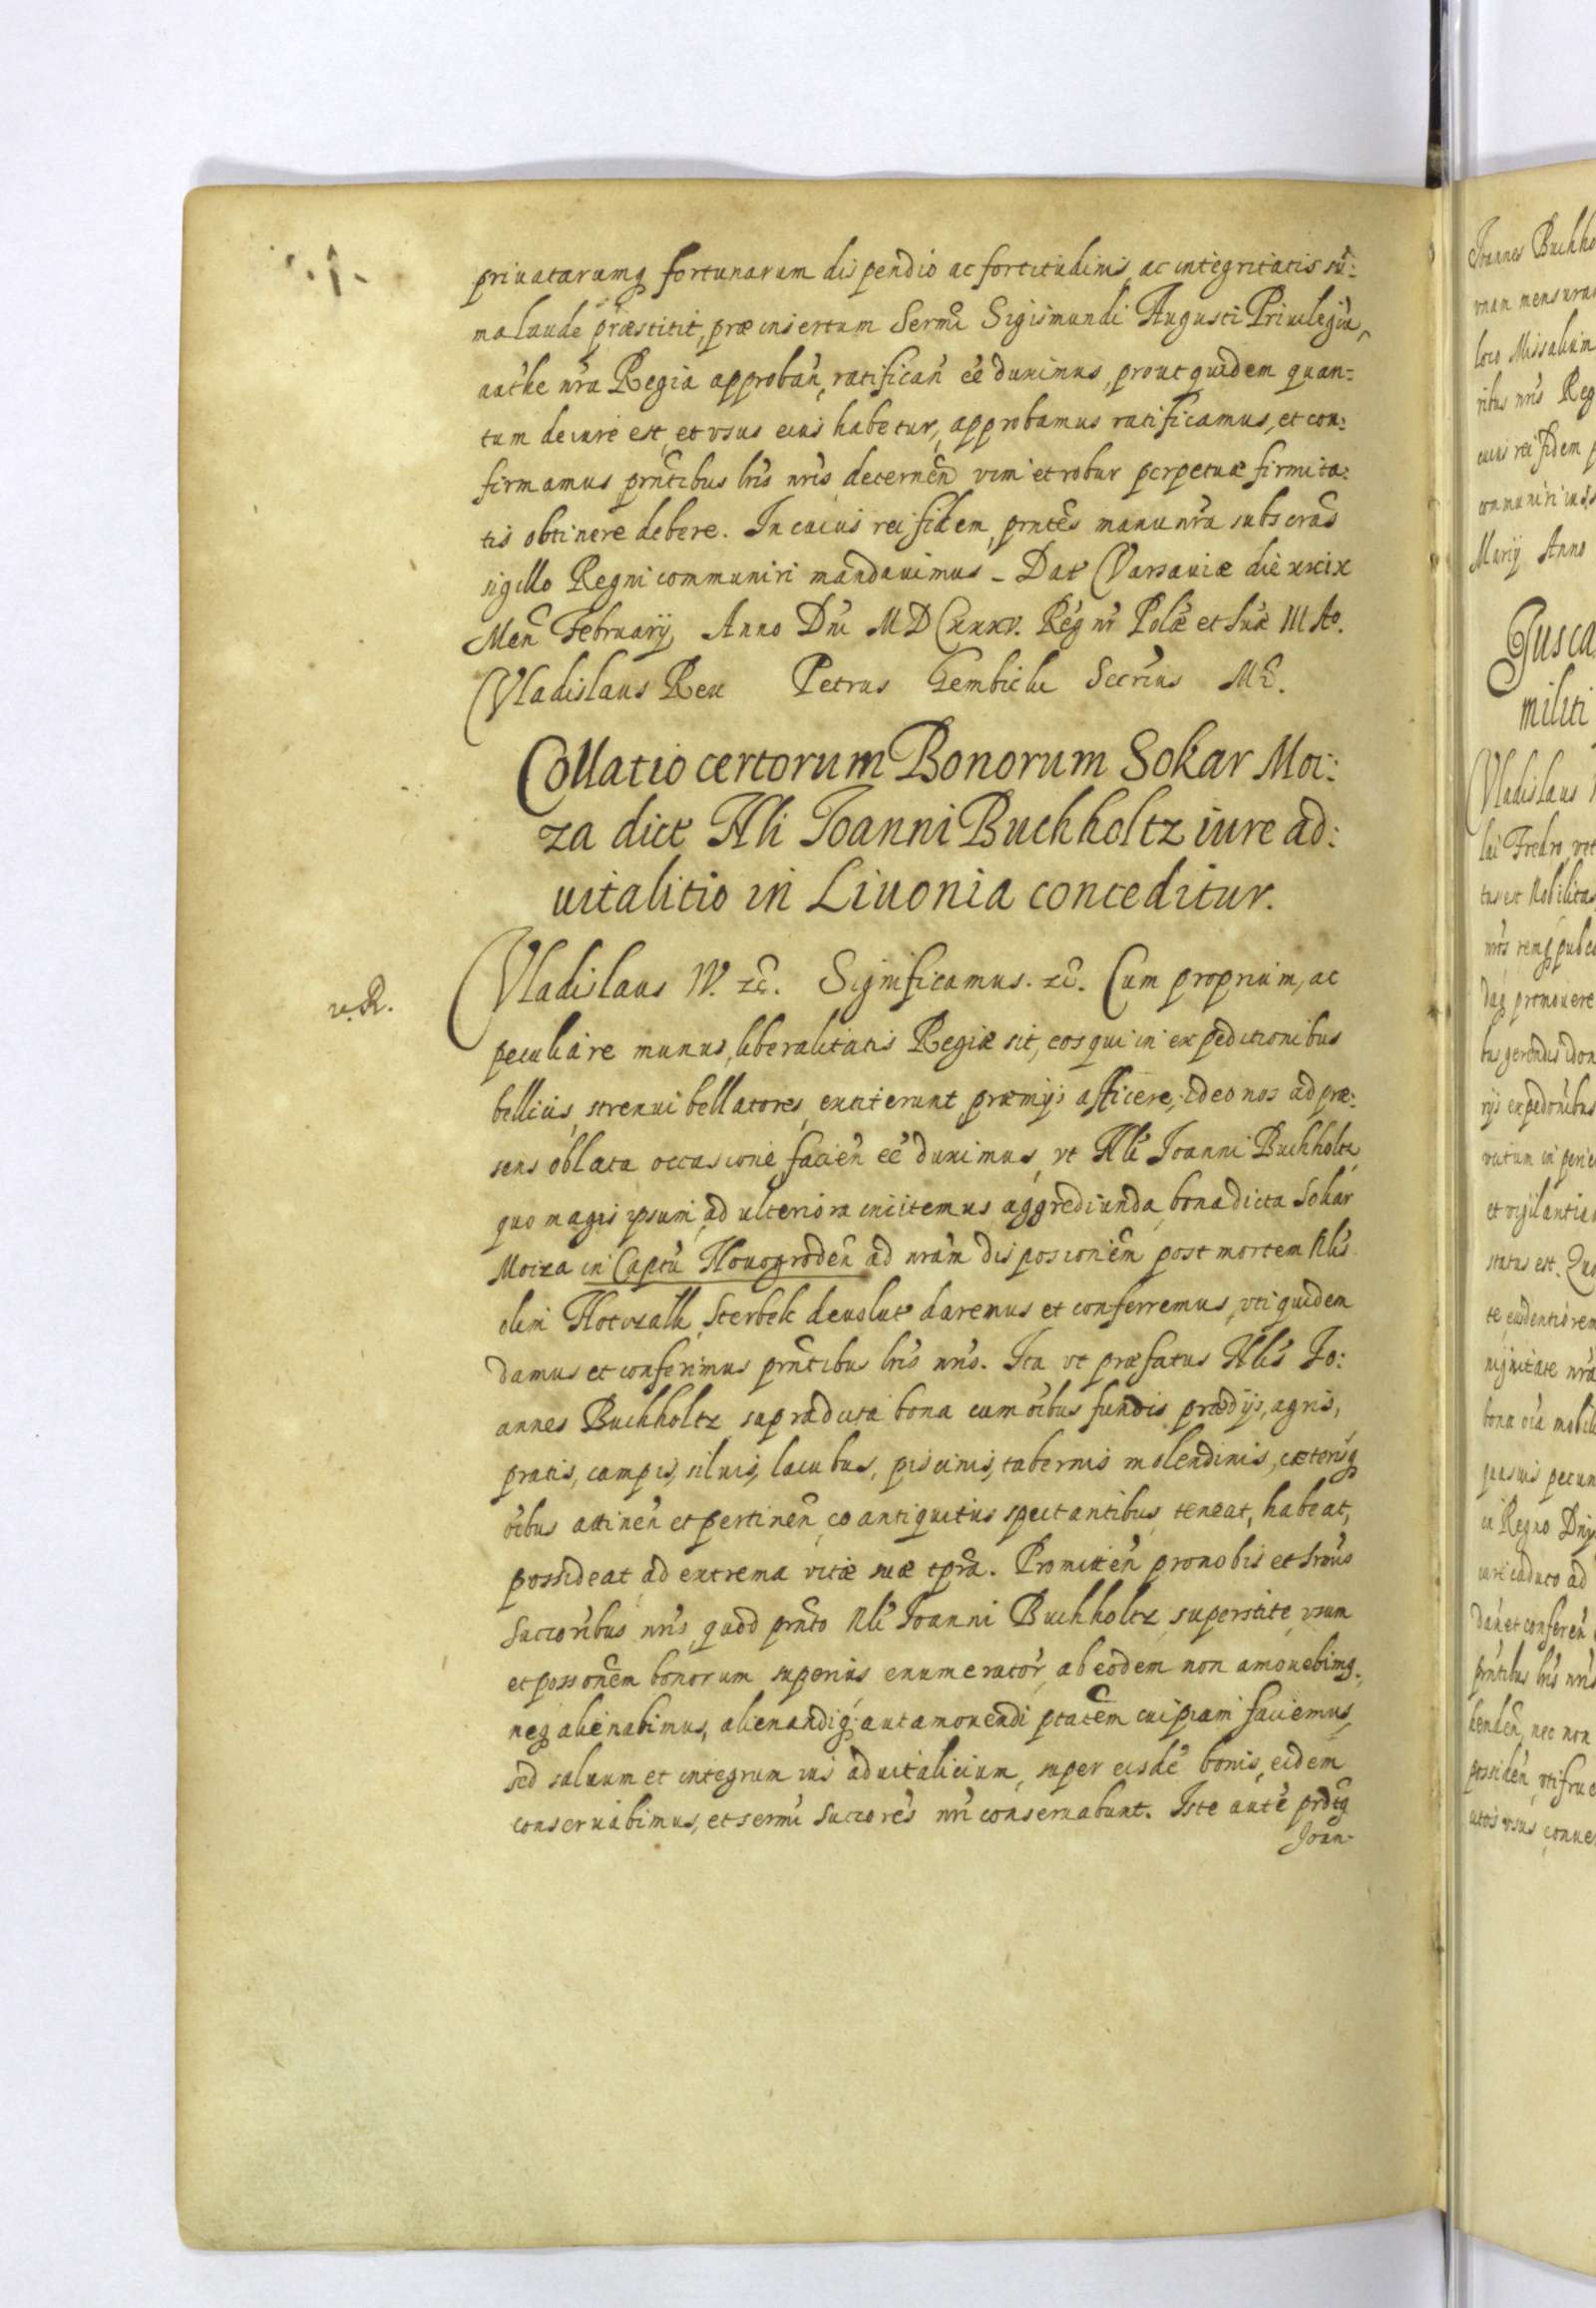 priuatarumq fortunarum dispendio ac fortitudinis ac integritatis sũ:
ma laude præstitit, præinsertum Sermi Sigismundi Augusti Priuilegiũ,
autħe nra Regia approbañ, ratificañ eẽ duximus, prout quidem quan:
tum de iure est, et vsus eius habetur, approbamus ratificamus, et con:
firmamus prñtibus lris nris, decernẽn vim et robur perpetuæ firmita:
tis obtinere debere. In cuius rei fidem, prntẽs manu nra subscras
sigillo Regni communiri mandauimus – Dat Varsauiæ die xxix
Meñ February, Anno Dni MDCxxxv. Reg nr Polæ et Suæ III Ao.
Vladislaus Rex Petrus Gembicki Secrius ME.
Collatio certorum Bonorum Sokar Moi:
za dict Nli Joanni Buchholtz iure ad:
uitalitio in Liuonia conceditur.
v. R.
Vladislaus IV. &c. Significamus. &c. Cum proprium, ac
peculiare munus, liberalitatis Regiæ sit, eos qui in expeditionibus
bellicis, strenui bellatores, extiterunt præmijs afficere, ideo nos ad præ:
sens oblata occasione, facieñ eẽ duximus, vt Nli Joanni Buchholtz,
quo magis ipsum, ad ulteriora incitemus aggrediunda, bona dicta Sokar
Moiza in Captũ Nouogrodeñ ad nram disposicionẽm post mortem Nlis
olim Sterbek deuolut daremus et conferremus, vti quidem
damus et conferimus prñtibus lris nris. Ita vt præfatus Nlis Jo:
annes Buchholtz supradicta bona cum oibus fundis prædijs, agris,
pratis, campis, siluis, lacubus, piscinis, tabernis molendinis, cæterisq
oibus attineñ et pertineñ, eo antiquitus spectantibus, teneat, habeat,
possideat, ad extrema vitæ suæ tpra. Promitteñ pro nobis et Srmis
Succoribus nris, quod prñto Nli Joanni Buchholtz, superstite, vsum
et possonẽm bonorum superius enumerator, ab eodem non amouebimq.
neq alienabimus, alienandiq. aut amouendi ptatẽm cuipiam faciemus,
sed saluum et integrum ius aduitalicium, super eisdẽ bonis, eidem
conseruabimus, et sermi Succores nri conseruabunt. Iste autẽ prdtq
Joan-